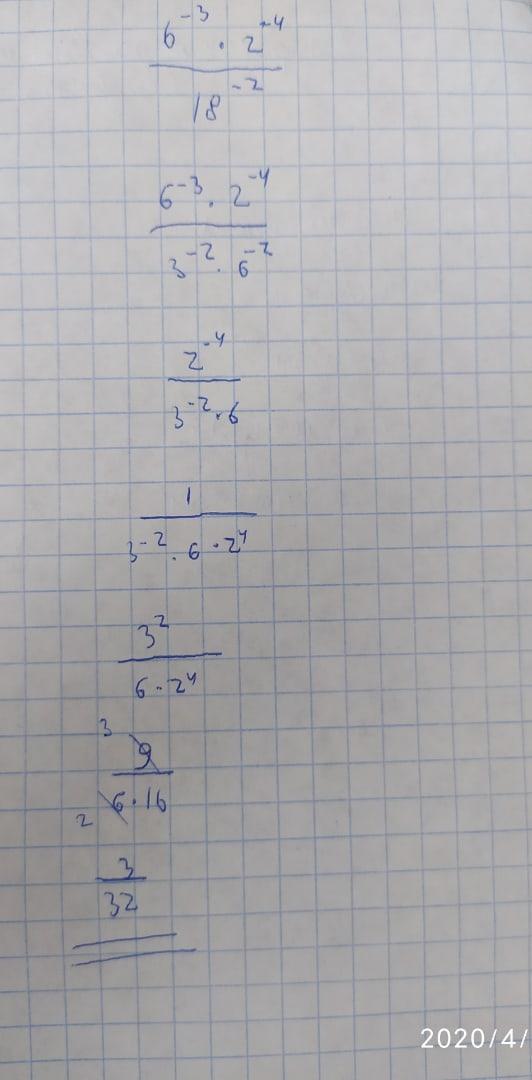 6⁻³ · 2⁻⁴
18⁻²
6⁻³ · 2⁻⁴
3⁻² · 6⁻²
2⁻⁴
3⁻² · 6
1
3⁻² · 6 · 2⁴
3²
6 · 2⁴
3 9
2 6 · 16
3
32
2020/4/